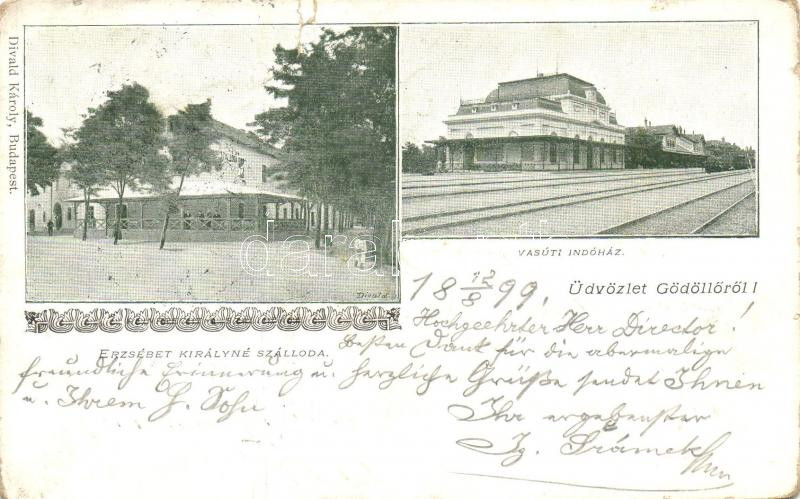 Divald Károly, Budapest.
Divald
darabanth
VASÚTI INDÓHÁZ.
ERZSÉBET KIRÁLYNÉ SZÁLLODA.
Üdvözlet Gödöllőről!
18 12/8 99.
Hochgeehrter Herr Director!
Besten Dank für die abermalige
freundliche Erinnerung u. herzliche Grüße sendet Ihnen
u. Ihrem H. Sohn
Ihr ergebenster
Ig. Srámek